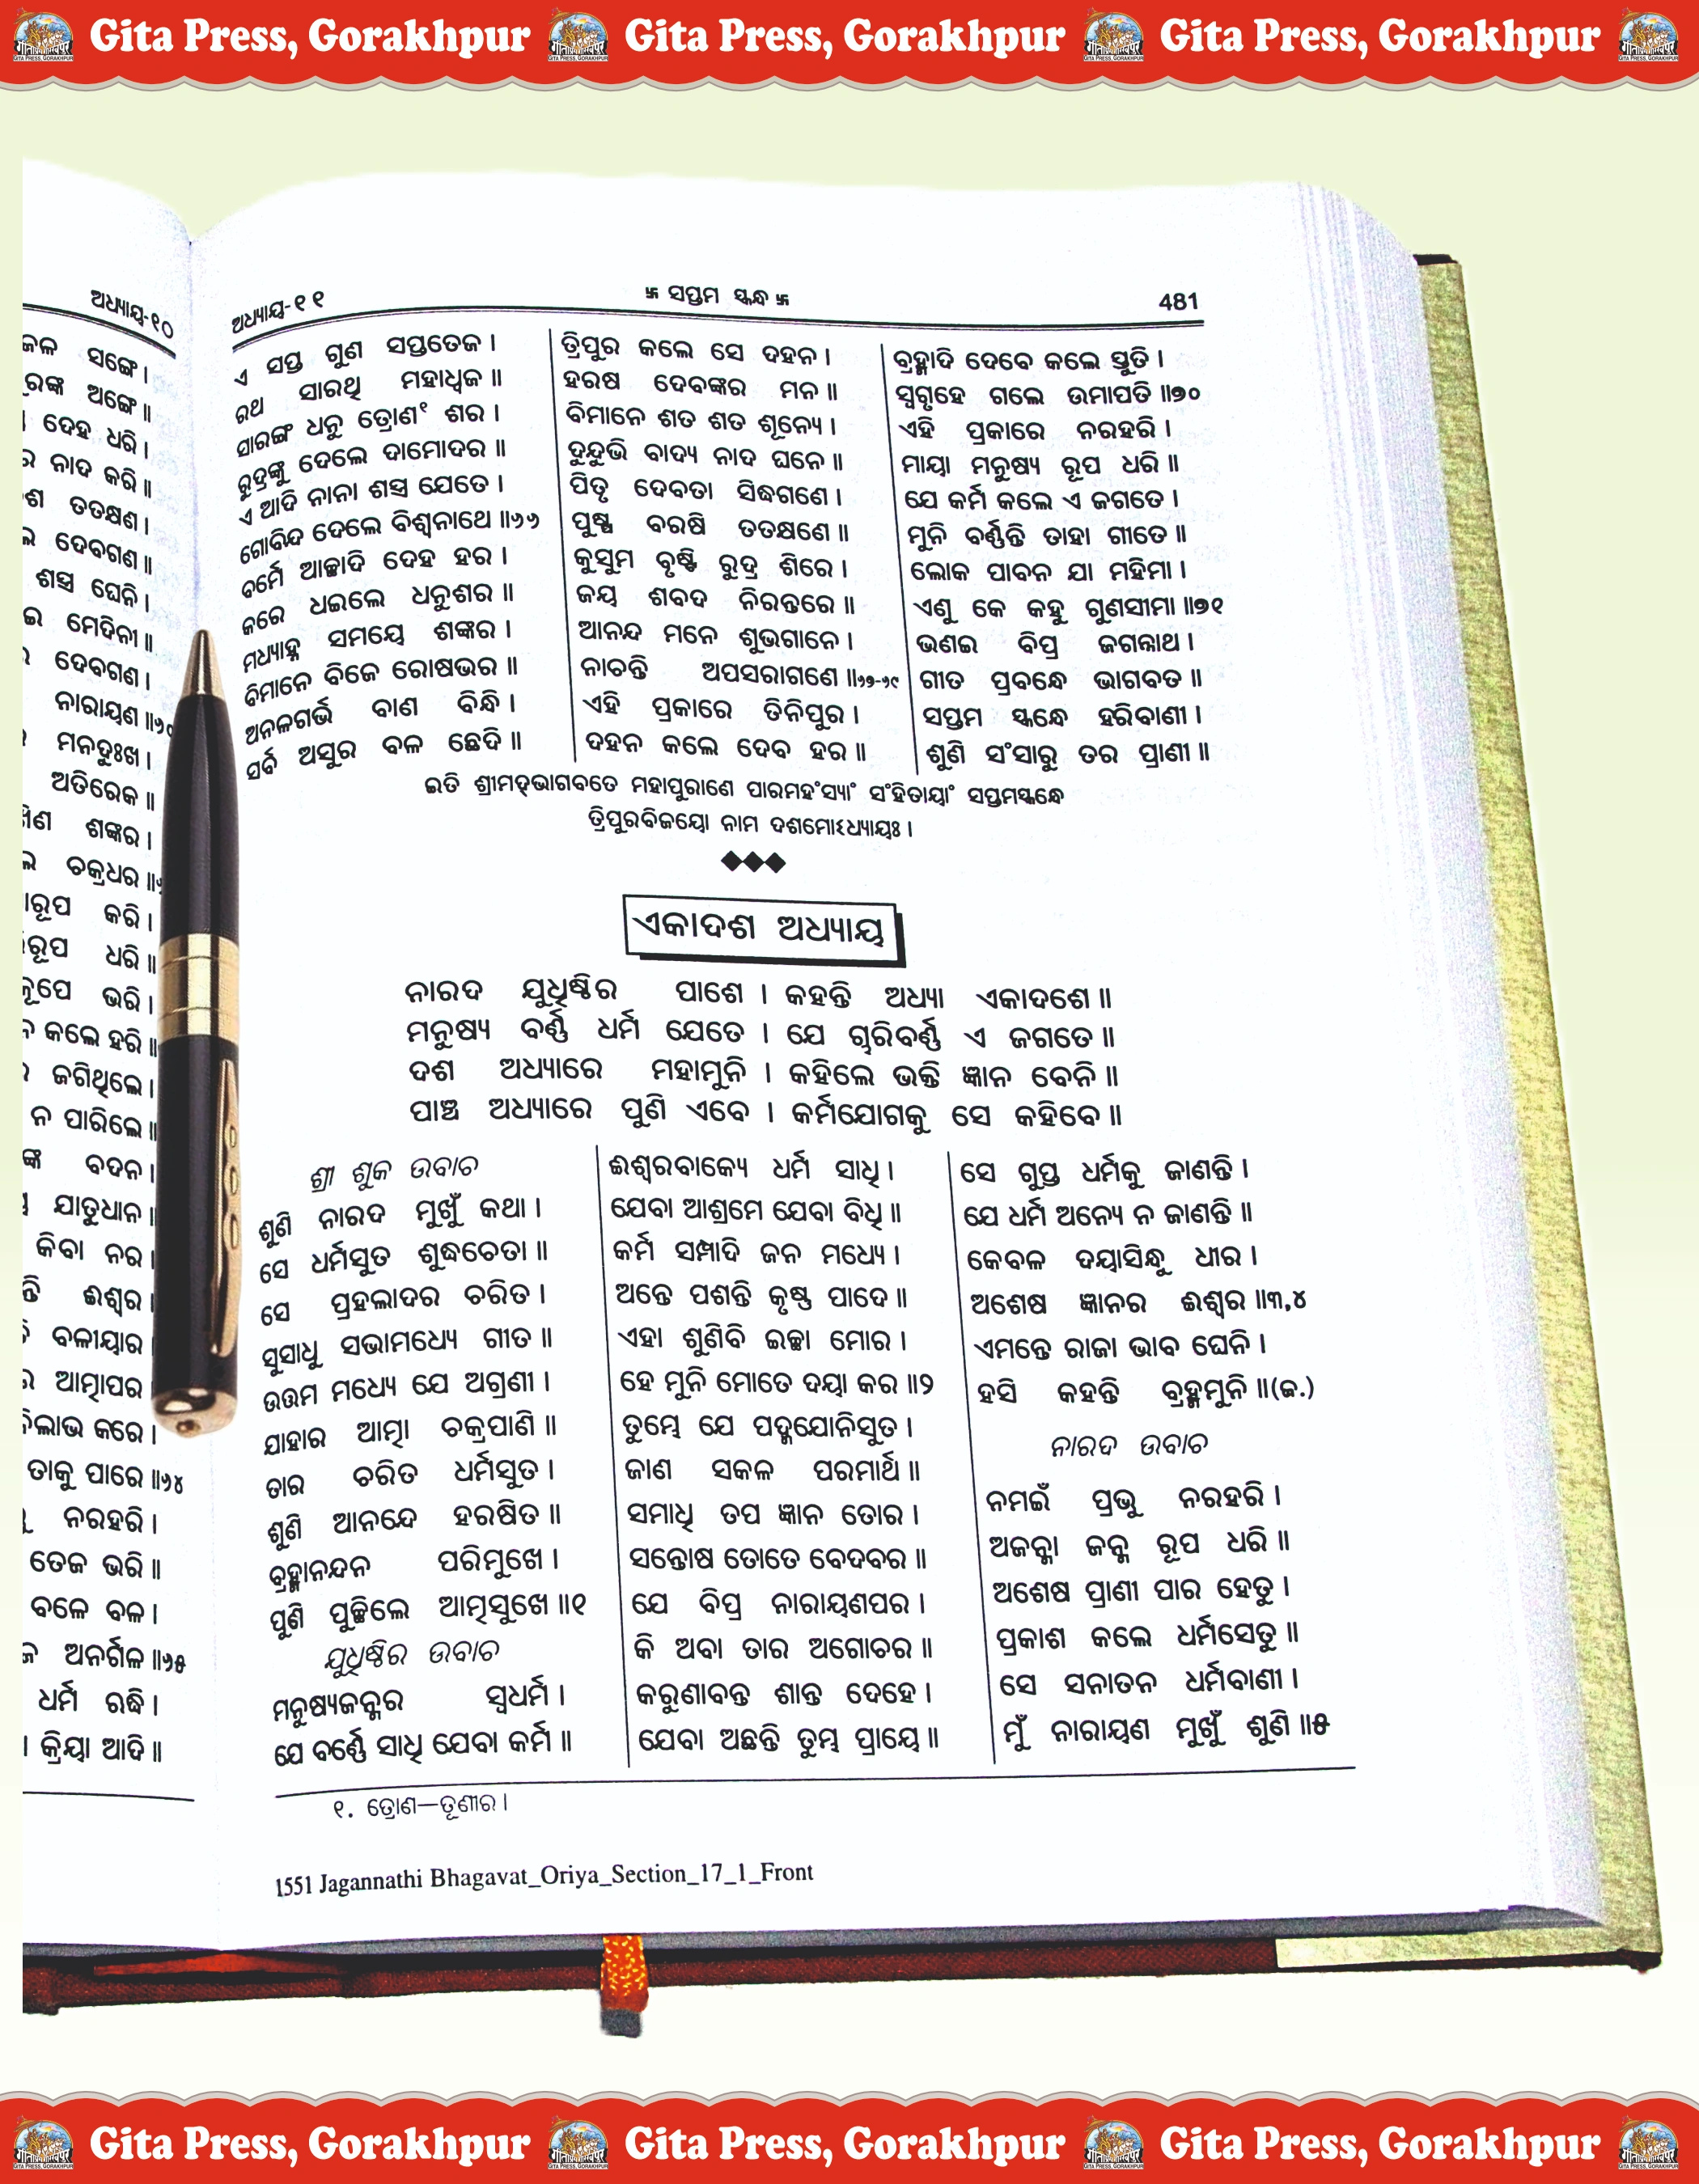 Gita Press, Gorakhpur Gita Press, Gorakhpur Gita Press, Gorakhpur
ଅଧ୍ୟାୟ-୧୦
ସଙ୍ଗେ।
ଅଙ୍ଗେ॥
ଦେହ ଧରି।
ନାଦ କରି॥
ତତକ୍ଷଣ।
ଦେବଗଣ॥
ଶସ୍ତ୍ର ଘେନି।
ମେଦିନୀ॥
ଦେବଗଣ।
ନାରାୟଣ
ମନଦୁଃଖ।
ଅତିରେକ॥
ଶଙ୍କର।
ଚକ୍ରଧର
କରି।
ଧରି॥
ଭରି।
କଲେ ହରି॥
ଜଗିଥିଲେ।
ନ ପାରିଲେ॥
ବଦନ।
ଯାତୁଧାନ॥
କିବା ନର।
ଈଶ୍ୱର
ବଳୀୟାର
ଆତ୍ମାପର
କରେ।
ତାକୁ ପାରେ॥୬୪
ନରହରି।
ତେଜ ଭରି॥
ବଳେ ବଳ।
ଅନର୍ଗଳ॥୬୫
ଧର୍ମ ଋଦ୍ଧି।
କ୍ରିୟା ଆଦି॥
ଅଧ୍ୟାୟ-୧୧ 卐 ସପ୍ତମ ସ୍କନ୍ଧ 卐 481
ଏ ସପ୍ତ ଗୁଣ ସପ୍ତତେଜ।
ରଥ ସାରଥି ମହାଧ୍ୱଜ॥
ସାରଙ୍ଗ ଧନୁ ତ୍ରୋଣ୧ ଶର।
ରୁଦ୍ରଙ୍କୁ ଦେଲେ ଦାମୋଦର॥
ଏ ଆଦି ନାନା ଶସ୍ତ୍ର ଯେତେ।
ଗୋବିନ୍ଦ ଦେଲେ ବିଶ୍ୱନାଥେ॥୬୬
ବର୍ମେ ଆଚ୍ଛାଦି ଦେହ ହର।
କରେ ଧଇଲେ ଧନୁଶର॥
ମଧ୍ୟାହ୍ନ ସମୟେ ଶଙ୍କର।
ବିମାନେ ବିଜେ ରୋଷଭର॥
ଅନଳଗର୍ଭ ବାଣ ବିନ୍ଧି।
ସର୍ବ ଅସୁର ବଳ ଛେଦି॥
ତ୍ରିପୁର କଲେ ସେ ଦହନ।
ହରଷ ଦେବଙ୍କର ମନ॥
ବିମାନେ ଶତ ଶତ ଶୂନ୍ୟେ।
ଦୁନ୍ଦୁଭି ବାଦ୍ୟ ନାଦ ଘନେ॥
ପିତୃ ଦେବତା ସିଦ୍ଧଗଣେ।
ପୁଷ୍ପ ବରଷି ତତକ୍ଷଣେ॥
କୁସୁମ ବୃଷ୍ଟି ରୁଦ୍ର ଶିରେ।
ଜୟ ଶବଦ ନିରନ୍ତରେ॥
ଆନନ୍ଦ ମନେ ଶୁଭଗାନେ।
ନାଚନ୍ତି ଅପସରାଗଣେ॥୬୭-୬୯
ଏହି ପ୍ରକାରେ ତିନିପୁର।
ଦହନ କଲେ ଦେବ ହର॥
ବ୍ରହ୍ମାଦି ଦେବେ କଲେ ସ୍ତୁତି।
ସ୍ୱଗୃହେ ଗଲେ ଉମାପତି॥୭୦
ଏହି ପ୍ରକାରେ ନରହରି।
ମାୟା ମନୁଷ୍ୟ ରୂପ ଧରି॥
ଯେ କର୍ମ କଲେ ଏ ଜଗତେ।
ମୁନି ବର୍ଣ୍ଣନ୍ତି ତାହା ଗୀତେ॥
ଲୋକ ପାବନ ଯା ମହିମା।
ଏଣୁ କେ କହୁ ଗୁଣସୀମା॥୭୧
ଭଣଇ ବିପ୍ର ଜଗନ୍ନାଥ।
ଗୀତ ପ୍ରବନ୍ଧେ ଭାଗବତ॥
ସପ୍ତମ ସ୍କନ୍ଧେ ହରିବାଣୀ।
ଶୁଣି ସଂସାରୁ ତର ପ୍ରାଣୀ॥
ଇତି ଶ୍ରୀମଦ୍‌ଭାଗବତେ ମହାପୁରାଣେ ପାରମହଂସ୍ୟାଂ ସଂହିତାୟାଂ ସପ୍ତମସ୍କନ୍ଧେ
ତ୍ରିପୁରବିଜୟୋ ନାମ ଦଶମୋଽଧ୍ୟାୟଃ।
◆◆◆
ଏକାଦଶ ଅଧ୍ୟାୟ
ନାରଦ ଯୁଧିଷ୍ଠିର ପାଶେ । କହନ୍ତି ଅଧ୍ୟା ଏକାଦଶେ॥
ମନୁଷ୍ୟ ବର୍ଣ୍ଣ ଧର୍ମ ଯେତେ । ଯେ ଚାରିବର୍ଣ୍ଣ ଏ ଜଗତେ॥
ଦଶ ଅଧ୍ୟାରେ ମହାମୁନି । କହିଲେ ଭକ୍ତି ଜ୍ଞାନ ବେନି॥
ପାଞ୍ଚ ଅଧ୍ୟାରେ ପୁଣି ଏବେ । କର୍ମଯୋଗକୁ ସେ କହିବେ॥
ଶ୍ରୀ ଶୁକ ଉବାଚ
ଶୁଣି ନାରଦ ମୁଖୁଁ କଥା।
ସେ ଧର୍ମସୁତ ଶୁଦ୍ଧଚେତା॥
ସେ ପ୍ରହଲାଦର ଚରିତ।
ସୁସାଧୁ ସଭାମଧ୍ୟେ ଗୀତ॥
ଉତ୍ତମ ମଧ୍ୟେ ଯେ ଅଗ୍ରଣୀ।
ଯାହାର ଆତ୍ମା ଚକ୍ରପାଣି॥
ତାର ଚରିତ ଧର୍ମସୁତ।
ଶୁଣି ଆନନ୍ଦେ ହରଷିତ॥
ବ୍ରହ୍ମାନନ୍ଦନ ପରିମୁଖେ।
ପୁଣି ପୁଚ୍ଛିଲେ ଆତ୍ମସୁଖେ॥୧
ଯୁଧିଷ୍ଠିର ଉବାଚ
ମନୁଷ୍ୟଜନ୍ମର ସ୍ୱଧର୍ମ।
ଯେ ବର୍ଣ୍ଣେ ସାଧି ଯେବା କର୍ମ॥
ଈଶ୍ୱରବାକ୍ୟେ ଧର୍ମ ସାଧି।
ଯେବା ଆଶ୍ରମେ ଯେବା ବିଧି॥
କର୍ମ ସମ୍ପାଦି ଜନ ମଧ୍ୟେ।
ଅନ୍ତେ ପଶନ୍ତି କୃଷ୍ଣ ପାଦେ॥
ଏହା ଶୁଣିବି ଇଚ୍ଛା ମୋର।
ହେ ମୁନି ମୋତେ ଦୟା କର॥୨
ତୁମ୍ଭେ ଯେ ପଦ୍ମଯୋନିସୁତ।
ଜାଣ ସକଳ ପରମାର୍ଥ॥
ସମାଧି ତପ ଜ୍ଞାନ ତୋର।
ସନ୍ତୋଷ ତୋତେ ବେଦବର॥
ଯେ ବିପ୍ର ନାରାୟଣପର।
କି ଅବା ତାର ଅଗୋଚର॥
କରୁଣାବନ୍ତ ଶାନ୍ତ ଦେହେ।
ଯେବା ଅଛନ୍ତି ତୁମ୍ଭ ପ୍ରାୟେ॥
ସେ ଗୁପ୍ତ ଧର୍ମକୁ ଜାଣନ୍ତି।
ଯେ ଧର୍ମ ଅନ୍ୟେ ନ ଜାଣନ୍ତି॥
କେବଳ ଦୟାସିନ୍ଧୁ ଧୀର।
ଅଶେଷ ଜ୍ଞାନର ଈଶ୍ୱର॥୩,୪
ଏମନ୍ତେ ରାଜା ଭାବ ଘେନି।
ହସି କହନ୍ତି ବ୍ରହ୍ମମୁନି॥(କ.)
ନାରଦ ଉବାଚ
ନମଇଁ ପ୍ରଭୁ ନରହରି।
ଅଜନ୍ମା ଜନ୍ମ ରୂପ ଧରି॥
ଅଶେଷ ପ୍ରାଣୀ ପାର ହେତୁ।
ପ୍ରକାଶ କଲେ ଧର୍ମସେତୁ॥
ସେ ସନାତନ ଧର୍ମବାଣୀ।
ମୁଁ ନାରାୟଣ ମୁଖୁଁ ଶୁଣି॥୫
୧. ତ୍ରୋଣ—ତୂଣୀର।
1551 Jagannathi Bhagavat_Oriya_Section_17_1_Front
Gita Press, Gorakhpur Gita Press, Gorakhpur Gita Press, Gorakhpur